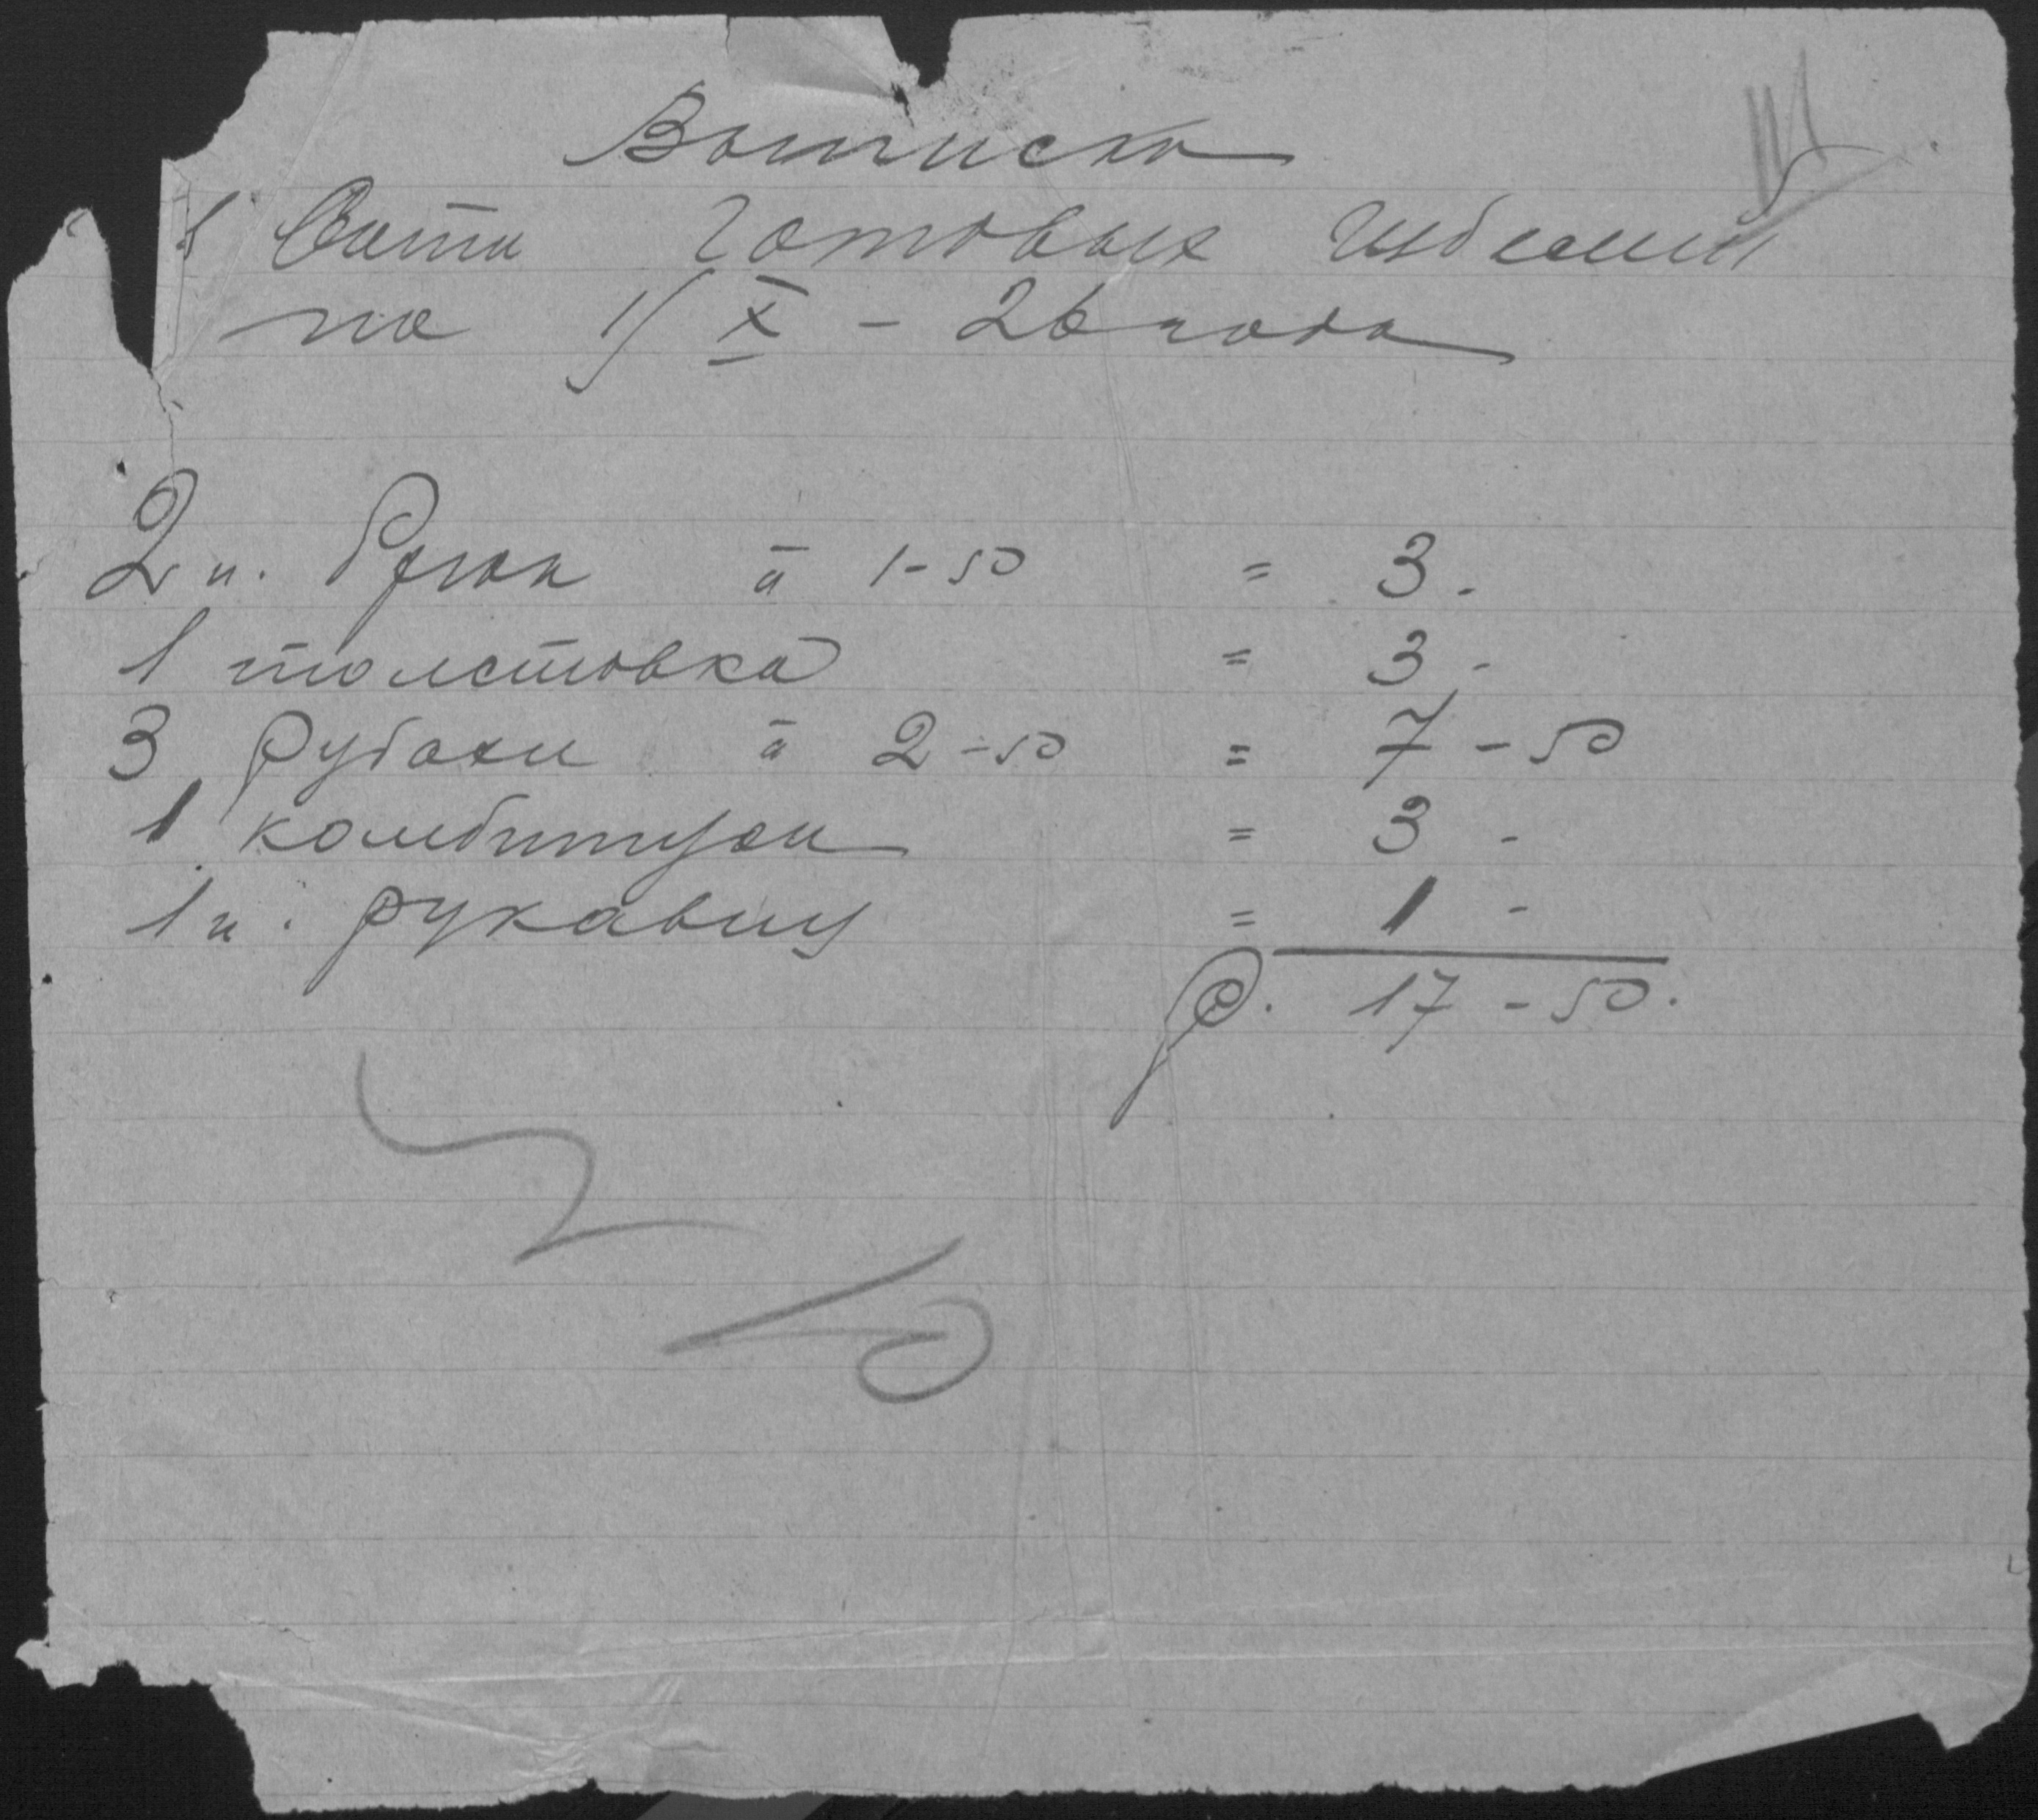 Выписка
готовых изделий
на 1/X - 26 года
2 п. брюк à 1-50 = 3.
1 толстовка = 3 -
3 рубахи à 2-50 = 7-50
1 комбинизон = 3 -
1 п. рукавиц = 1 -
р. 17-50.